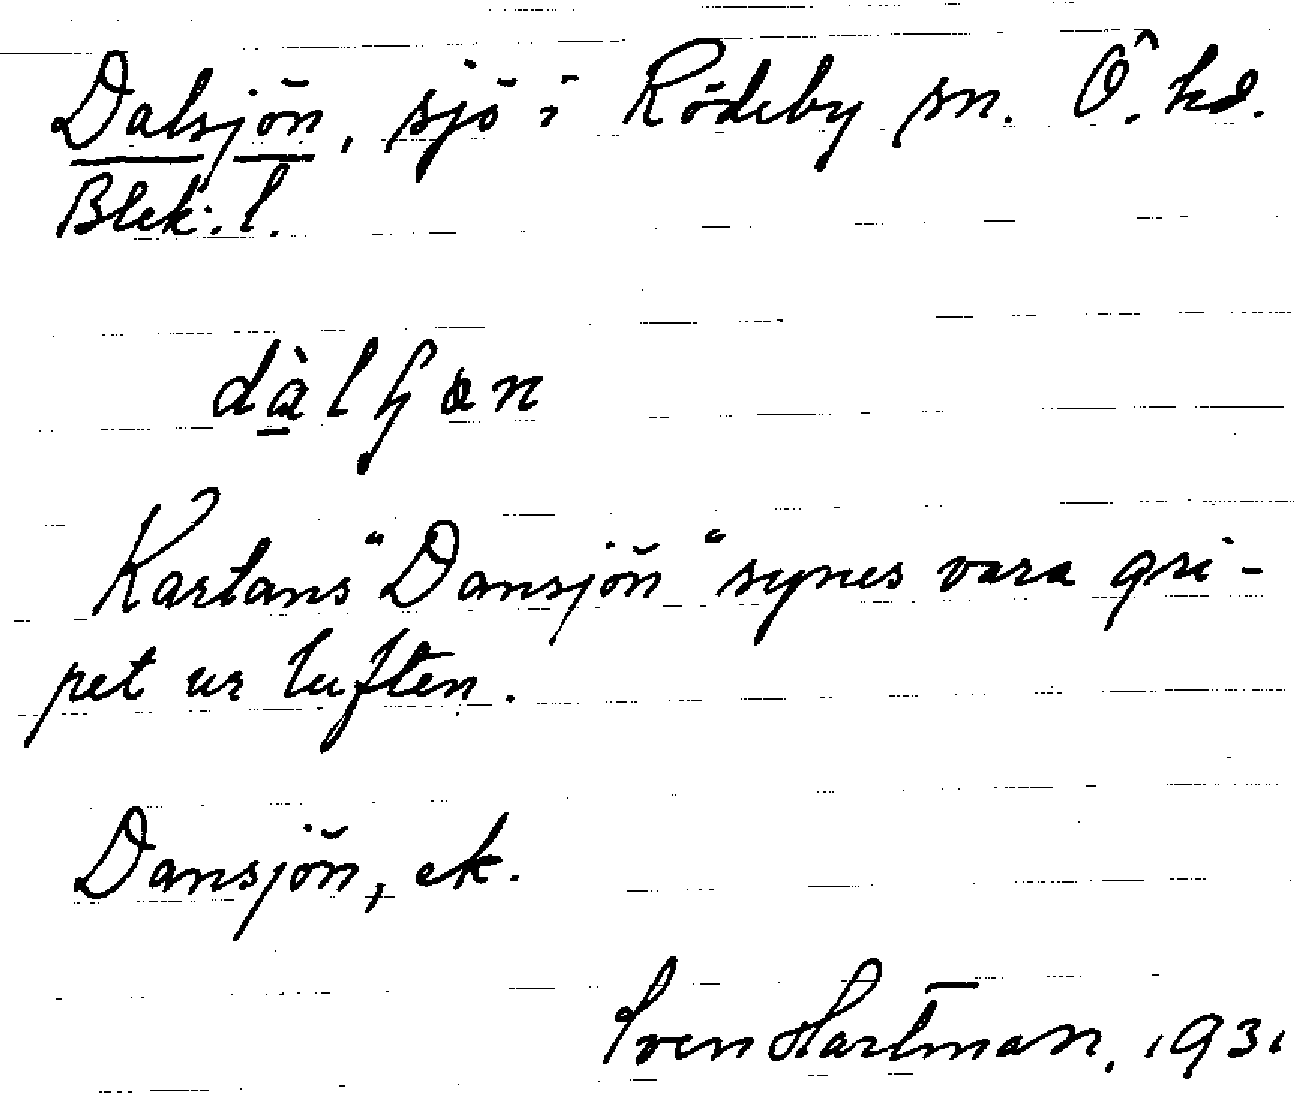 Dalsjön, sjö i Rödeby sn. Ö. hd.
Blek. l.
dàlʃɷn
Kartans "Dansjön" synes vara gri-
pet ur luften.
Dansjön, ek.
Sven Hartman, 1931